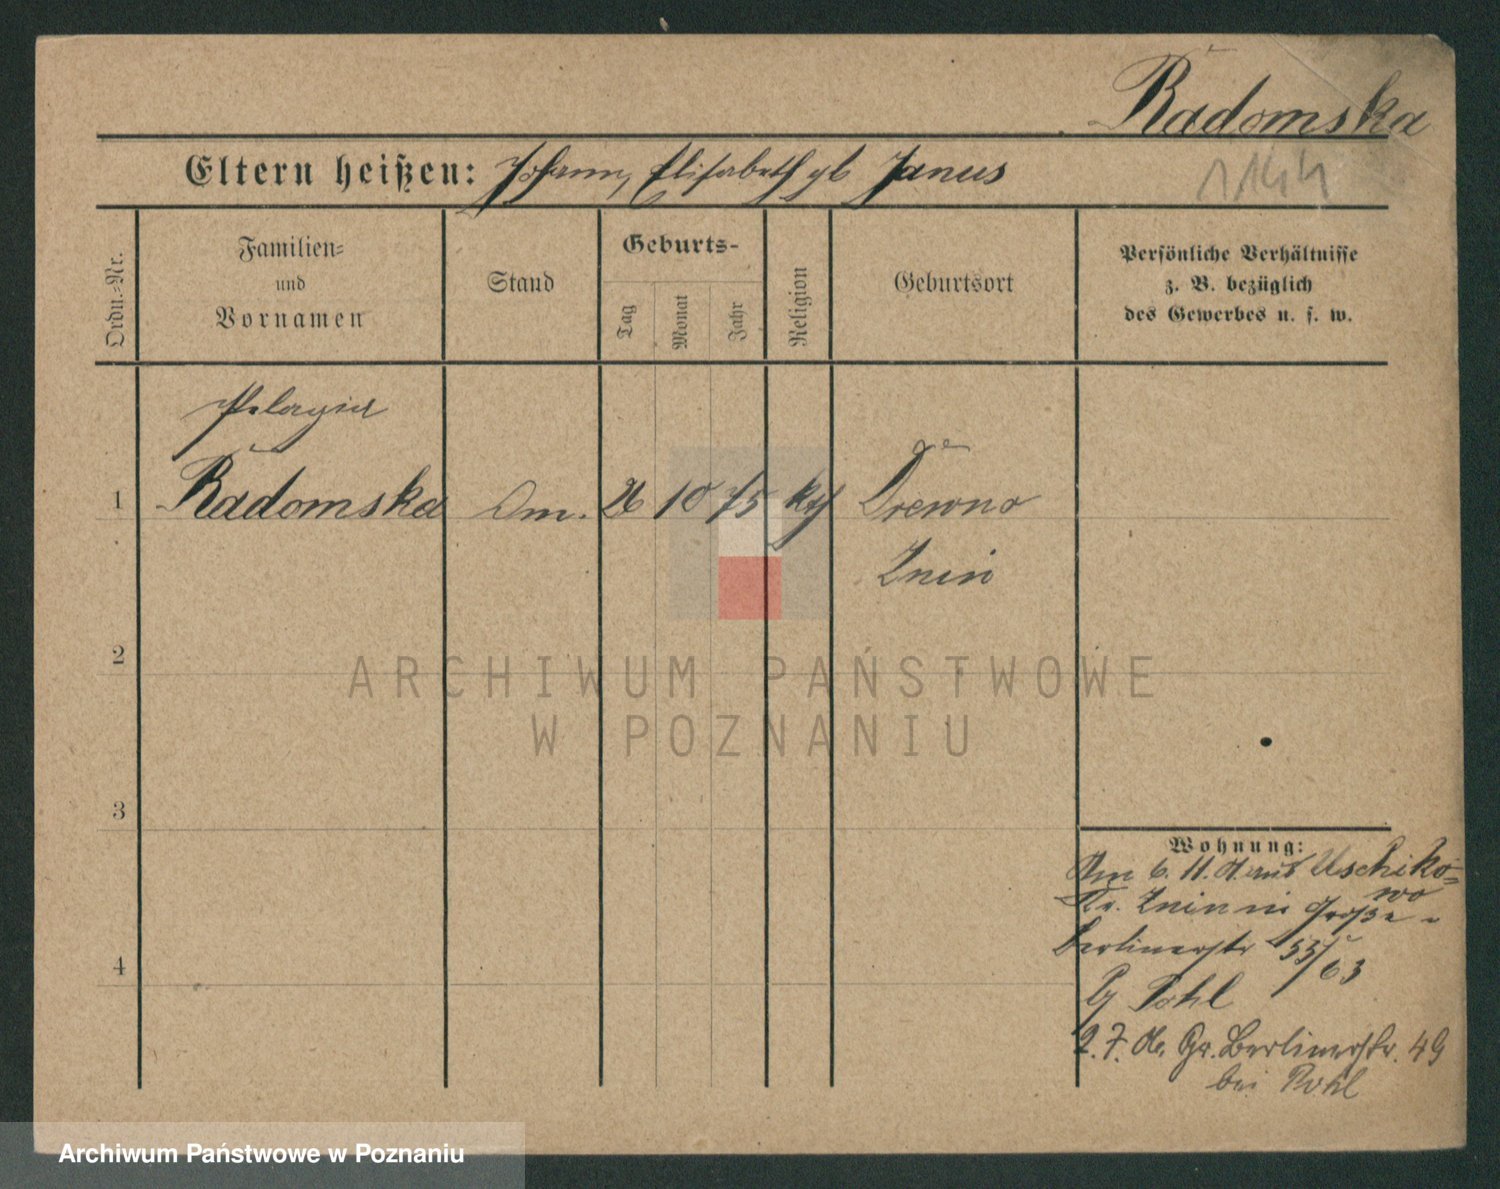 Radomska
Eltern heißen: Johann, Elisabeth gb Janus
1144
Ordn.-Nr.
Familien-
und
Vornamen
Stand
Geburts-
Tag
Monat
Jahr
Religion
Geburtsort
Persönliche Verhältnisse
z. B. bezüglich
des Gewerbes u. s. w.
Pelagia
1 Radomska Dm. 26 10 75 kth Drewno
Znin
2
ARCHIWUM PAŃSTWOWE
W POZNANIU
3
Wohnung:
Am 6. 11. aus Uschiko-
wo
Kr. Znin in Große
Berlinerstr 53/63
4
Pohl
2. 7. Gr. Berlinerstr. 49
bei Pohl
Archiwum Państwowe w Poznaniu